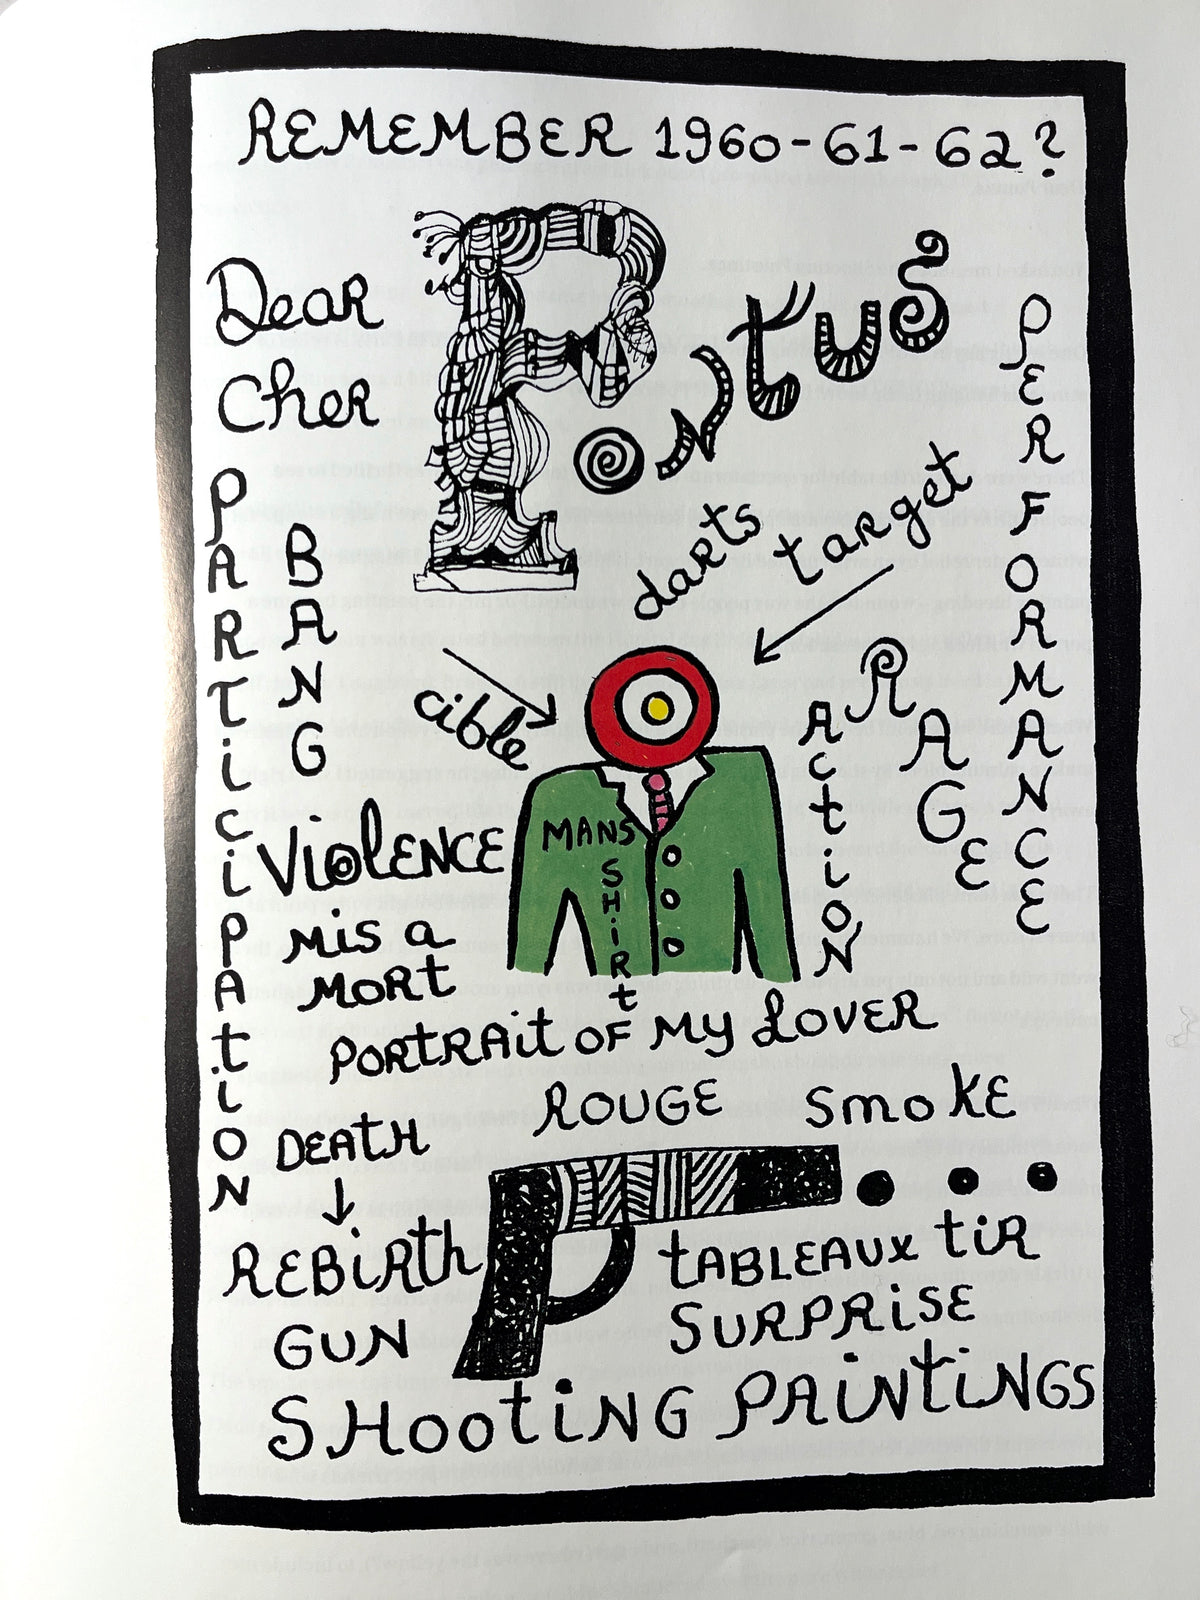 REMEMBER 1960-61-62?
Dear
Cher
Pontus
PERFORMANCE
PARTiCiPAtiON
BANG
darts
target
cible
RAGE
ACtiON
MANS
SHiRt
ViOlENCE
Mis a
MORt
PORtRAit OF MY LOVER
ROUGE
SmoKE
DEAtH
REBiRth
GUN
tABLEAUX tiR
SURPRiSE
SHOOtiNG PAiNtiNGS